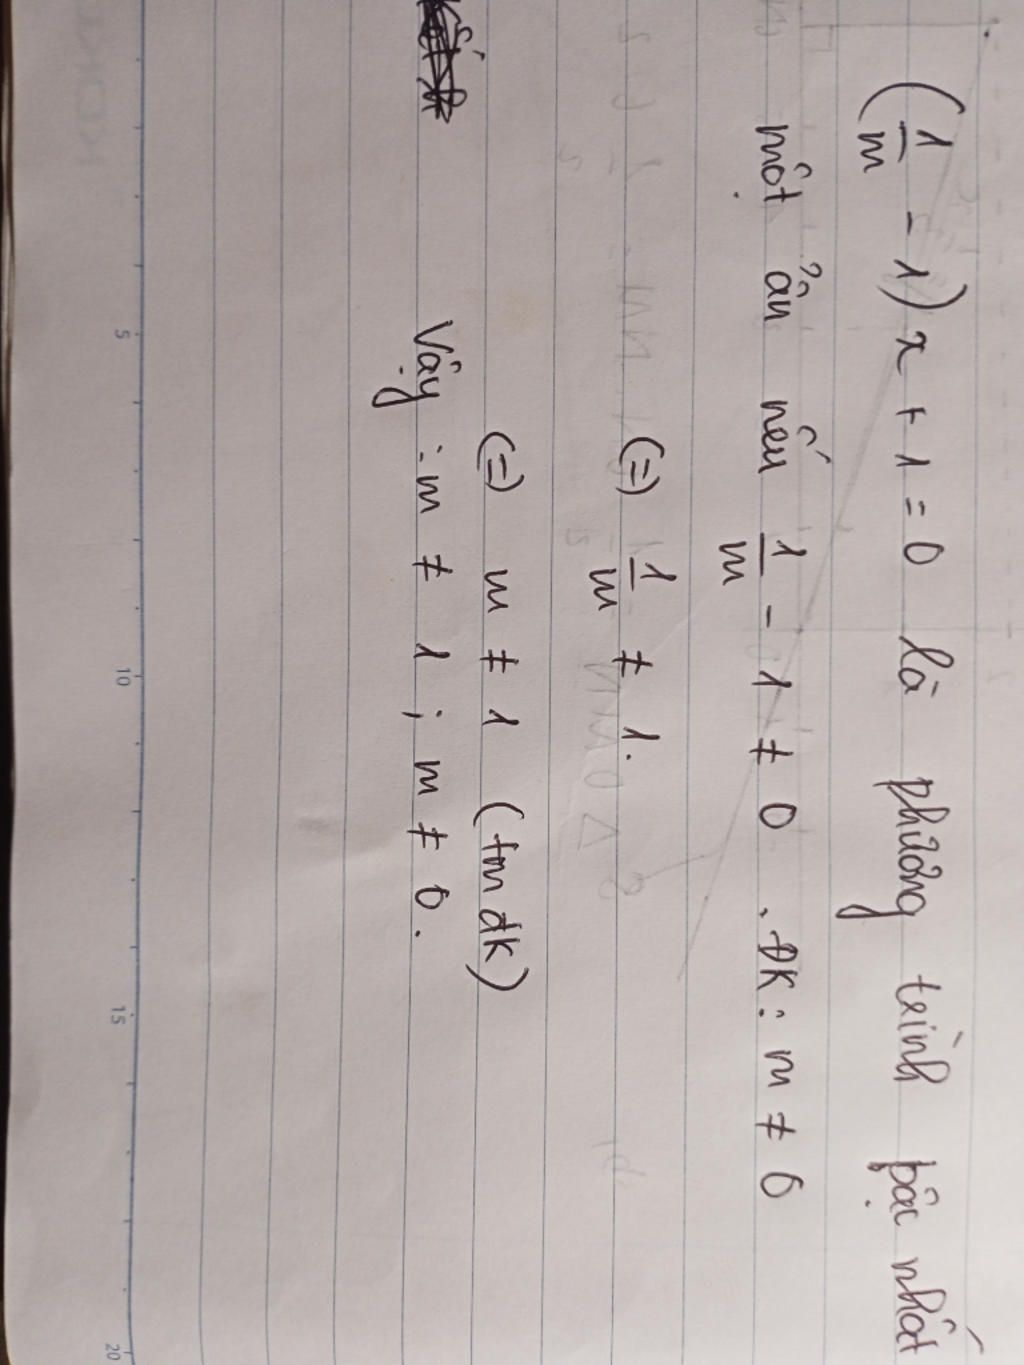 (1/m - 1) x + 1 = 0 là phương trình bậc nhất
một ẩn nếu 1/m - 1 ≠ 0 . ĐK: m ≠ 0
(=) 1/m ≠ 1.
(=) m ≠ 1 (tm đk)
Vậy : m ≠ 1 ; m ≠ 0.
5
10
15
20